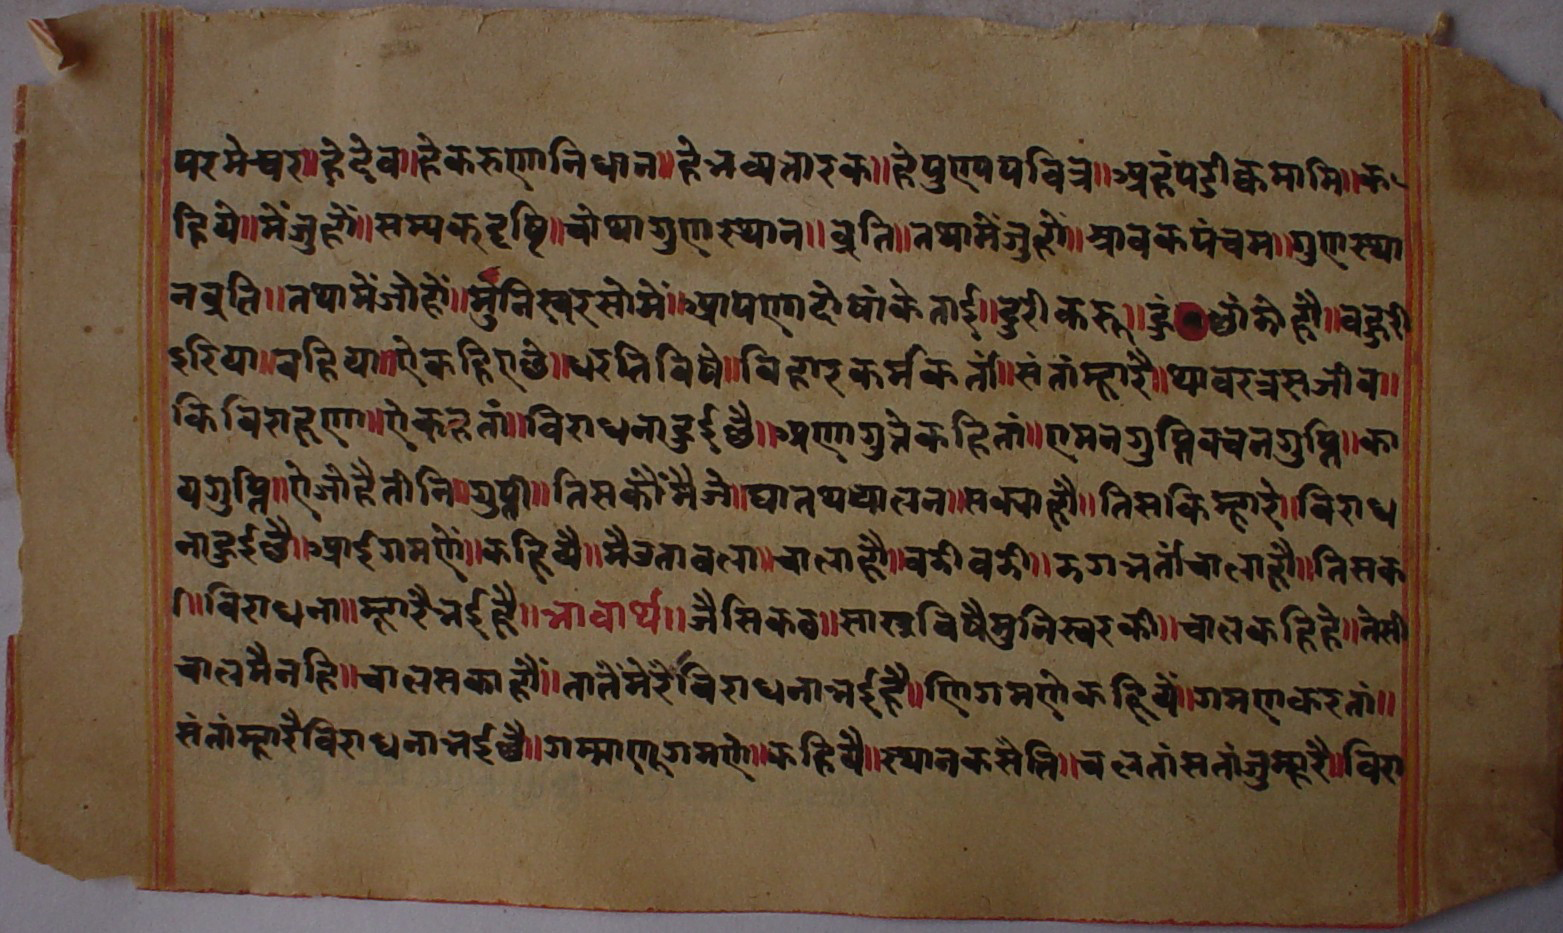 परमेस्वर॥हे देव॥हे करुणानिधान॥हे भव्यतारक॥हे पुण्यपवित्र॥अहं पडीक्कमामि॥क
हिये॥में जुहों॥सम्यकदृष्टि॥चोथागुणस्थान॥व्रति॥तथामें जुहों॥स्रावकपंचम॥गुणस्था
नव्रति॥तथामें जोहों॥मुंनिस्वरसोमें॥आपणादोषांकेतांई॥दुरीकरू॥ छांडोहौं॥वहुरी
इरिया॥वहिया॥ऐकहिएछे॥धरतिविषे॥विहारकर्मकर्ता॥संतांम्हारै॥थावरत्रसजीव॥
किविराहणा॥ऐकहतां॥विराधनाहुईछै॥अणागुत्तेकहितां॥एमनगुप्तिवचनगुप्ति॥का
यगुप्ति॥ऐजोहैतीनि॥गुप्ती॥तिसकौंमैंजे॥घातथयालन॥सक्याहौं॥तिसकिम्हारे॥विराध
नाहुईछै॥आईगमणें॥कहियै॥मैउतावला॥चालाहौं॥वडीवडी॥डगभर्तांचालाहौं॥तिसक
ी॥विराधना॥म्हारैभईहै॥भावार्थ॥जैसिकठ॥सास्त्रविषैमुनिस्वरकी॥चालकहिहे॥तेसी
चालमैनहि॥चालसकाहौं॥तातैंमेरैविराधनाभईहै॥णिगमणेकहियें॥गमणकरतां॥
संतांम्हारैविराधनाभईछै॥गम्माणुगमणे॥कहियै॥स्थानकसैति॥चलतांसतांजुम्हारै॥विरा